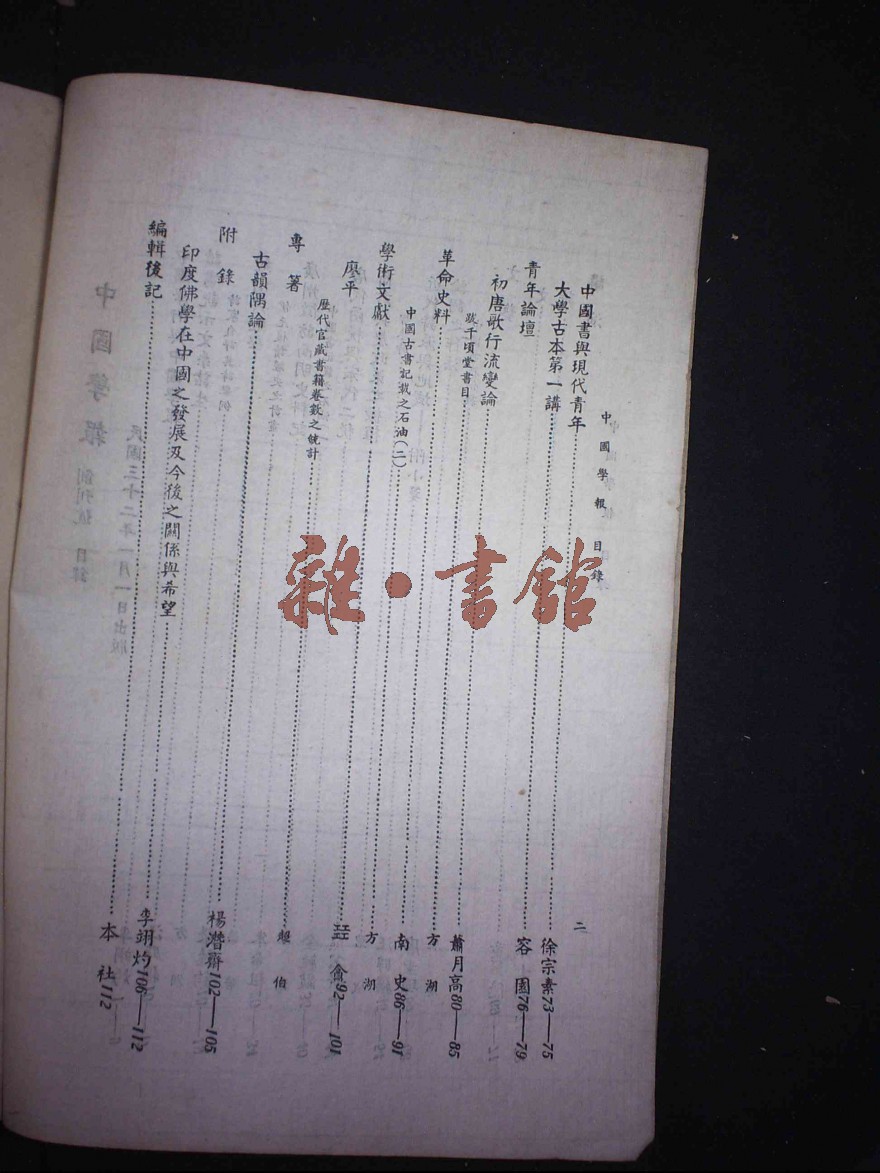 中國學報 目錄 二
中國書與現代青年……徐宗素73——75
大學古本第一講……容園76——79
青年論壇
初唐歌行流變論……蕭月高80——85
號千頃堂書目……方湖
革命史料……南史86——91
中國古書記載之石油(二)……方湖
學術文獻
廖平……畲92——101
歷代官藏書籍卷數之統計……趙伯
專著
古韻隅論……楊潛齋102——105
附錄
印度佛學在中國之發展及今後之關係與希望……李翊灼106——112
編輯後記……本社112
雜·書館